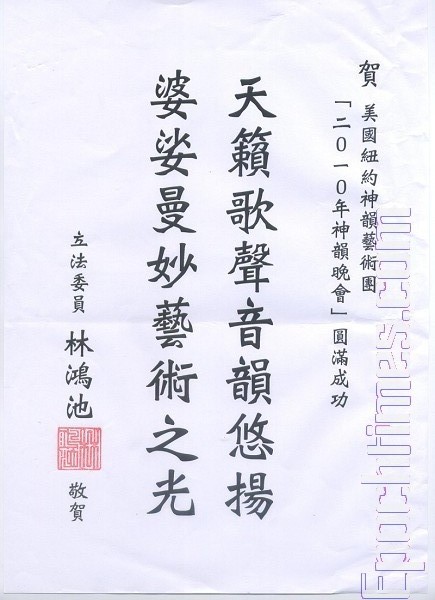 賀 美國紐約神韻藝術團
「二○一○年神韻晚會」圓滿成功
天籟歌聲音韻悠揚
婆娑曼妙藝術之光
立法委員 林鴻池 敬賀
Epochtimes.com